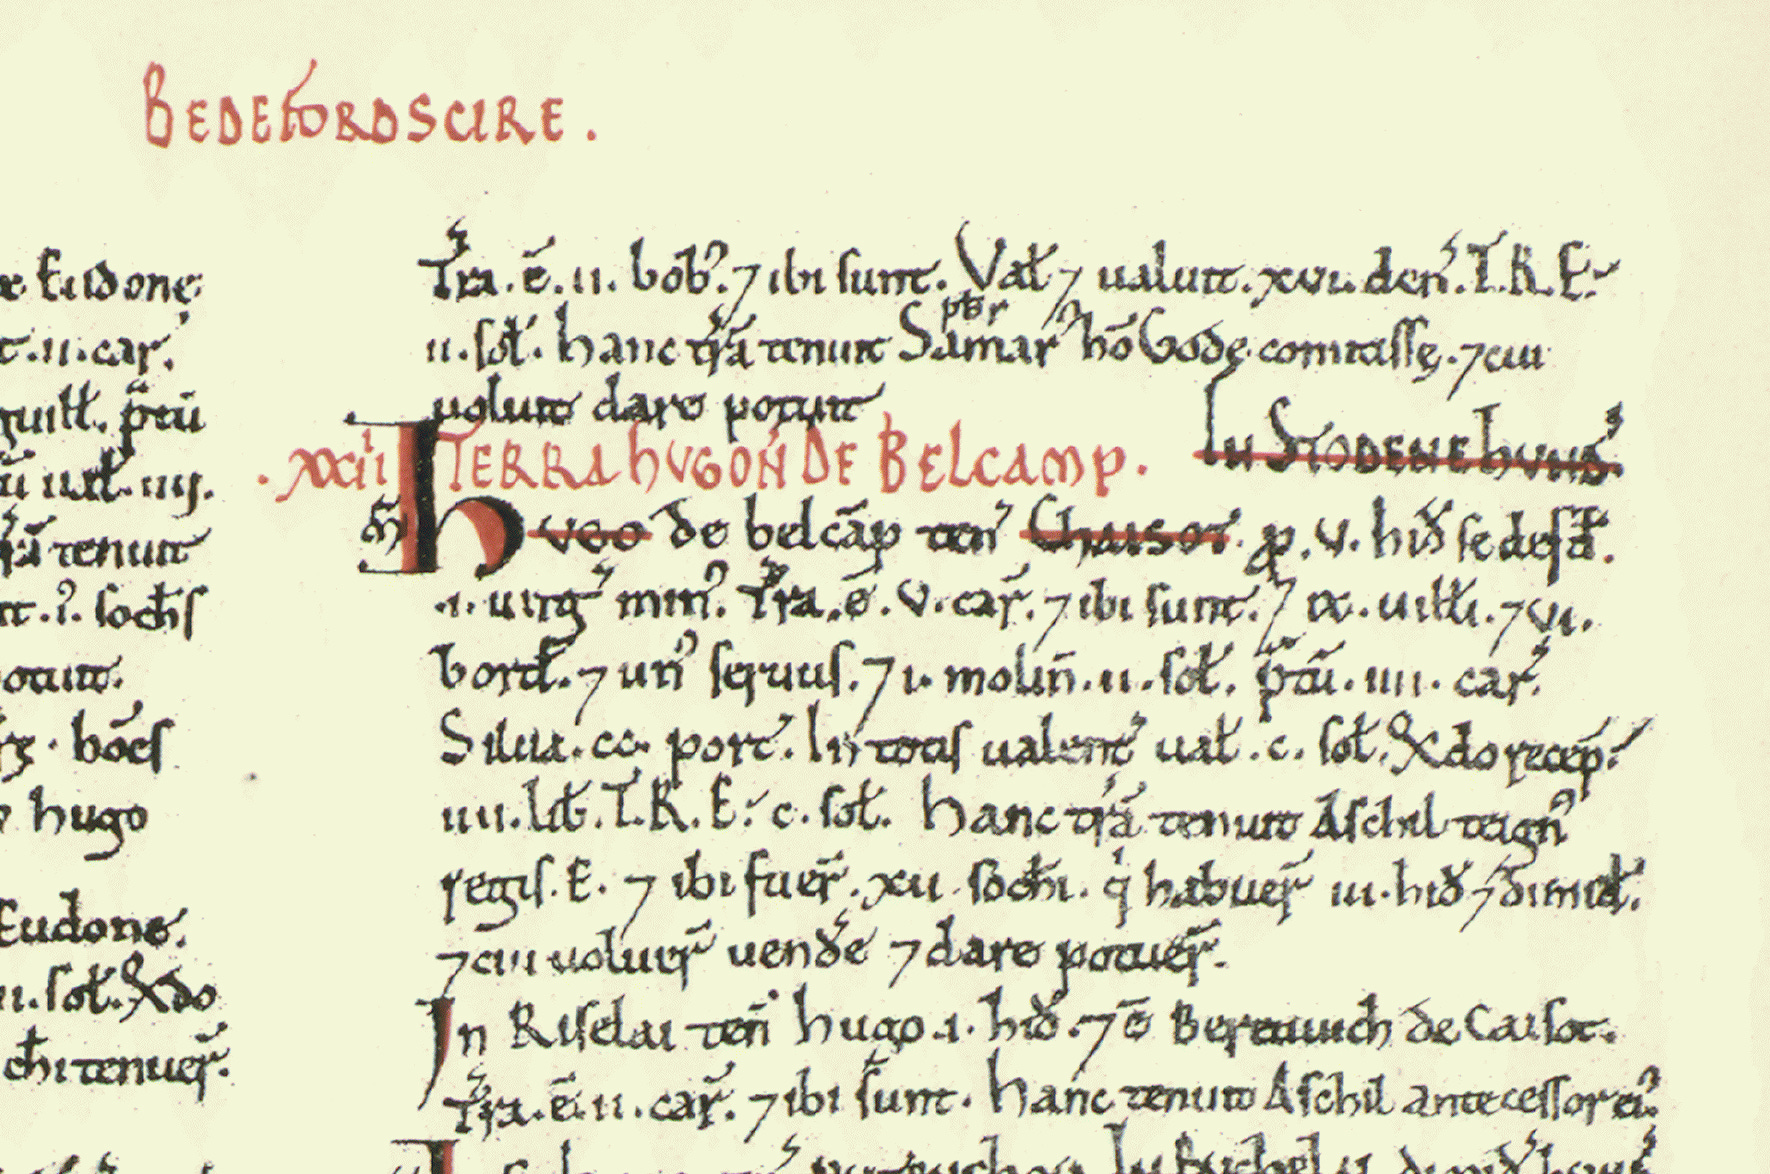 BEDEFORDSCIRE.
Eudone.
t.ii.car̃.
uiłł. p̃tũ
uał. iiij.
tr̃a tenuit
it.⁊. soch̃s
potuit.
bõeſ
hugo
Eudone.
ii.soł. Q̃do
ch̃i tenuer̃.
Tr̃a.ẽ.ii. bob᷒.⁊ ibi sunt. Vał ⁊ ualuit.xvi. den̓.T.R.E.
ii.soł. hanc tr̃a tenuit Samar p̃br hõ Godę comitissę.⁊ cui
uoluit dare potuit
.xxii TERRA HUGON̓ DE BELCAMP. In STODENE hund̓.
m̃ HUGO de belcãp ten̓ Chaisot. p̱.v. hiđ se defđ.
.i. uirg̓ min᷒. Tr̃a.ẽ.v.car̃.⁊ ibi sunt.⁊ ix.uiłłi.⁊ vi.
borđ.⁊ un᷒ seruus.⁊ i. molin̓.ii.soł. p̃tũ.iiii. car̃.
Silua.cc. porc̓. In totis ualent̓ uał.c. soł. Q̃do recep̓.
iiii.lib̓.T.R.E. c. soł. hanc tr̃a tenuit Aschil teign᷒
regis.E. ⁊ ibi fuer̃.xii. soch̃i. q̓ habuer̃ iii.hiđ ⁊ dimiđ.
⁊ cui uoluer̃ uend̓e ⁊ dare potuer̃.
In Riselai ten̓ hugo.i. hiđ.⁊ ẽ Bereuuich de Caisot.
Tr̃a.ẽ.ii.car̃.⁊ ibi sunt. hanc tenuit Aschil antecessor ei᷒.